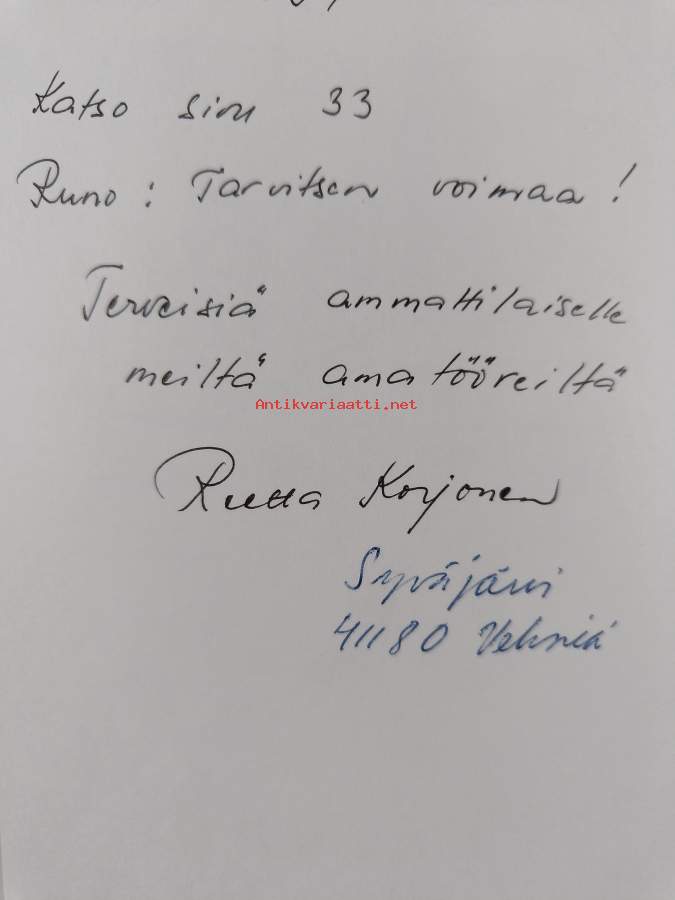 Katso sivu 33
Runo: Tarvitsen voimaa!
Terveisiä ammattilaiselle
meiltä amatööreiltä
Antikvariaatti.net
Riitta Korjonen
Syväjärvi
41180 Vehniä